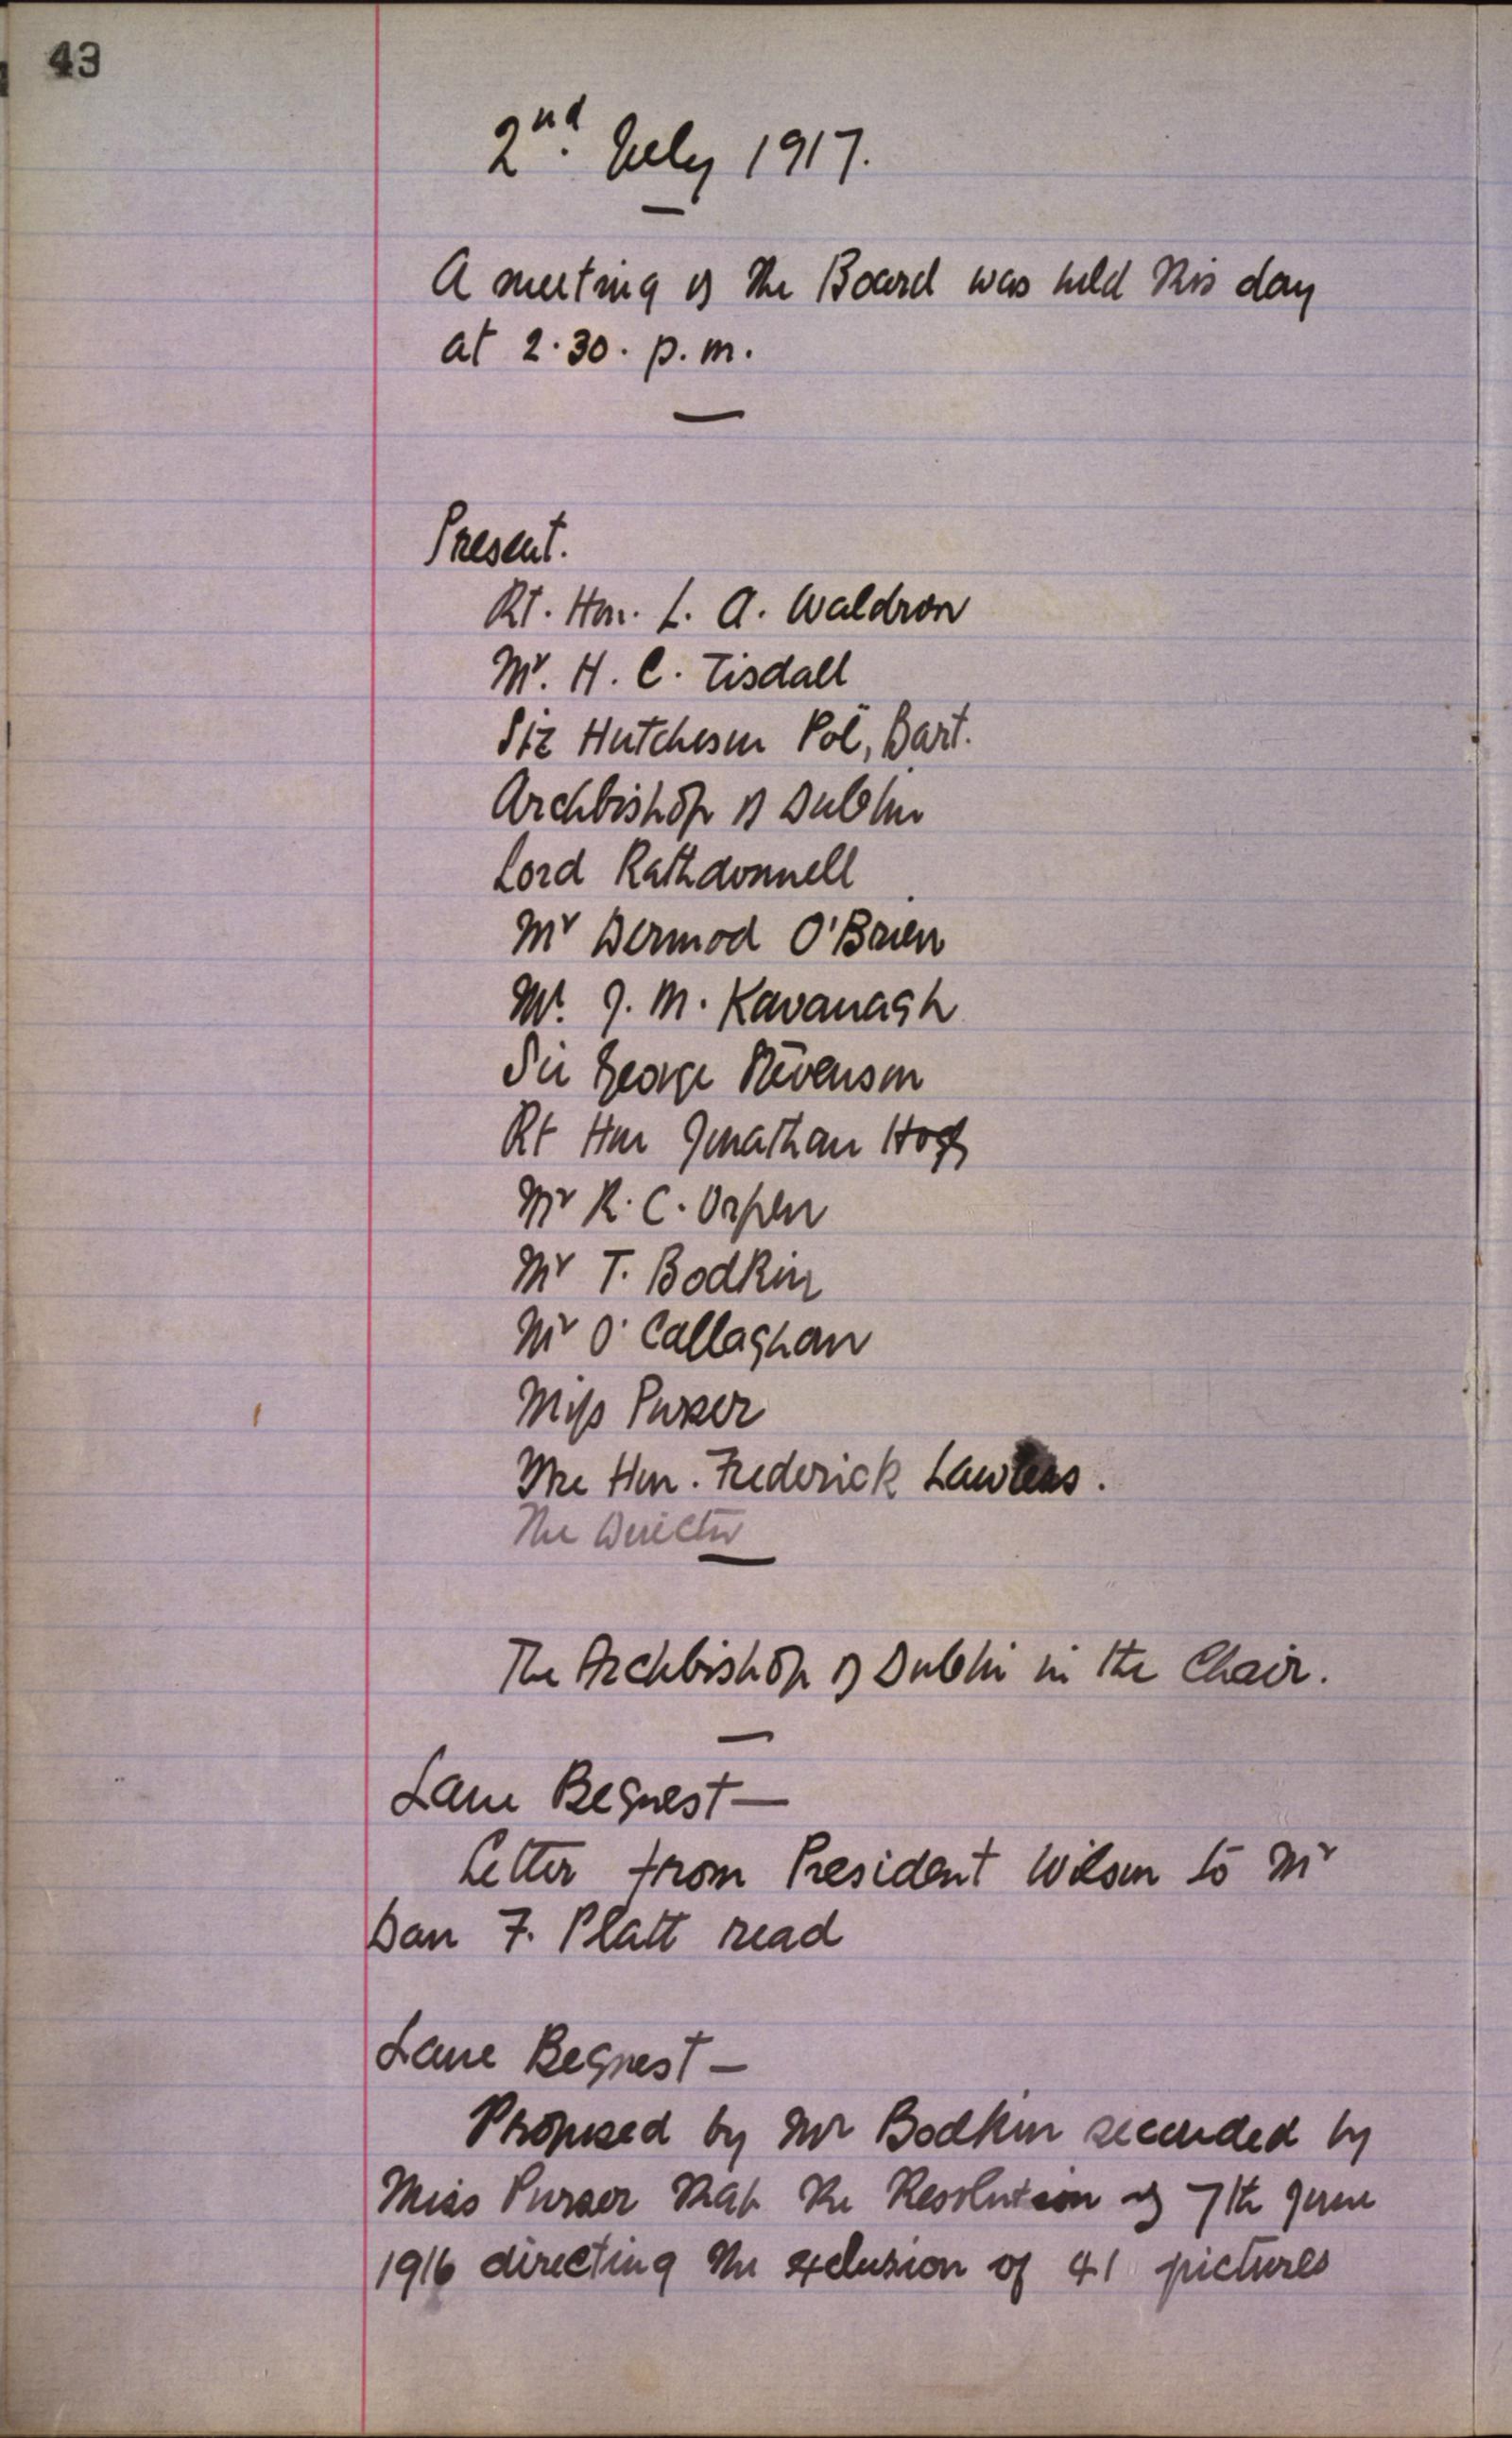 43
2nd. July 1917.
A meeting of the Board was held this day
at 2.30. p.m.
Present.
Rt. Hon. L. A. Waldron
Mr. H. C. Tisdall
Sir Hutcheson Poë, Bart.
Archbishop of Dublin
Lord Rathdonnell
Mr Dermod O'Brien
Mr. J. M. Kavanagh
Sir George Stevenson
Rt Hon Jonathan Hogg
Mr R. C. Orpen
Mr T. Bodkin
Mr O'Callaghan
Miss Purser
The Hon. Frederick Lawless.
The Director
The Archbishop of Dublin in the Chair.
Lane Bequest—
Letter from President Wilson to Mr
Dan F. Platt read
Lane Bequest—
Proposed by Mr Bodkin seconded by
Miss Purser that the Resolution of 7th June
1916 directing the exclusion of 41 pictures